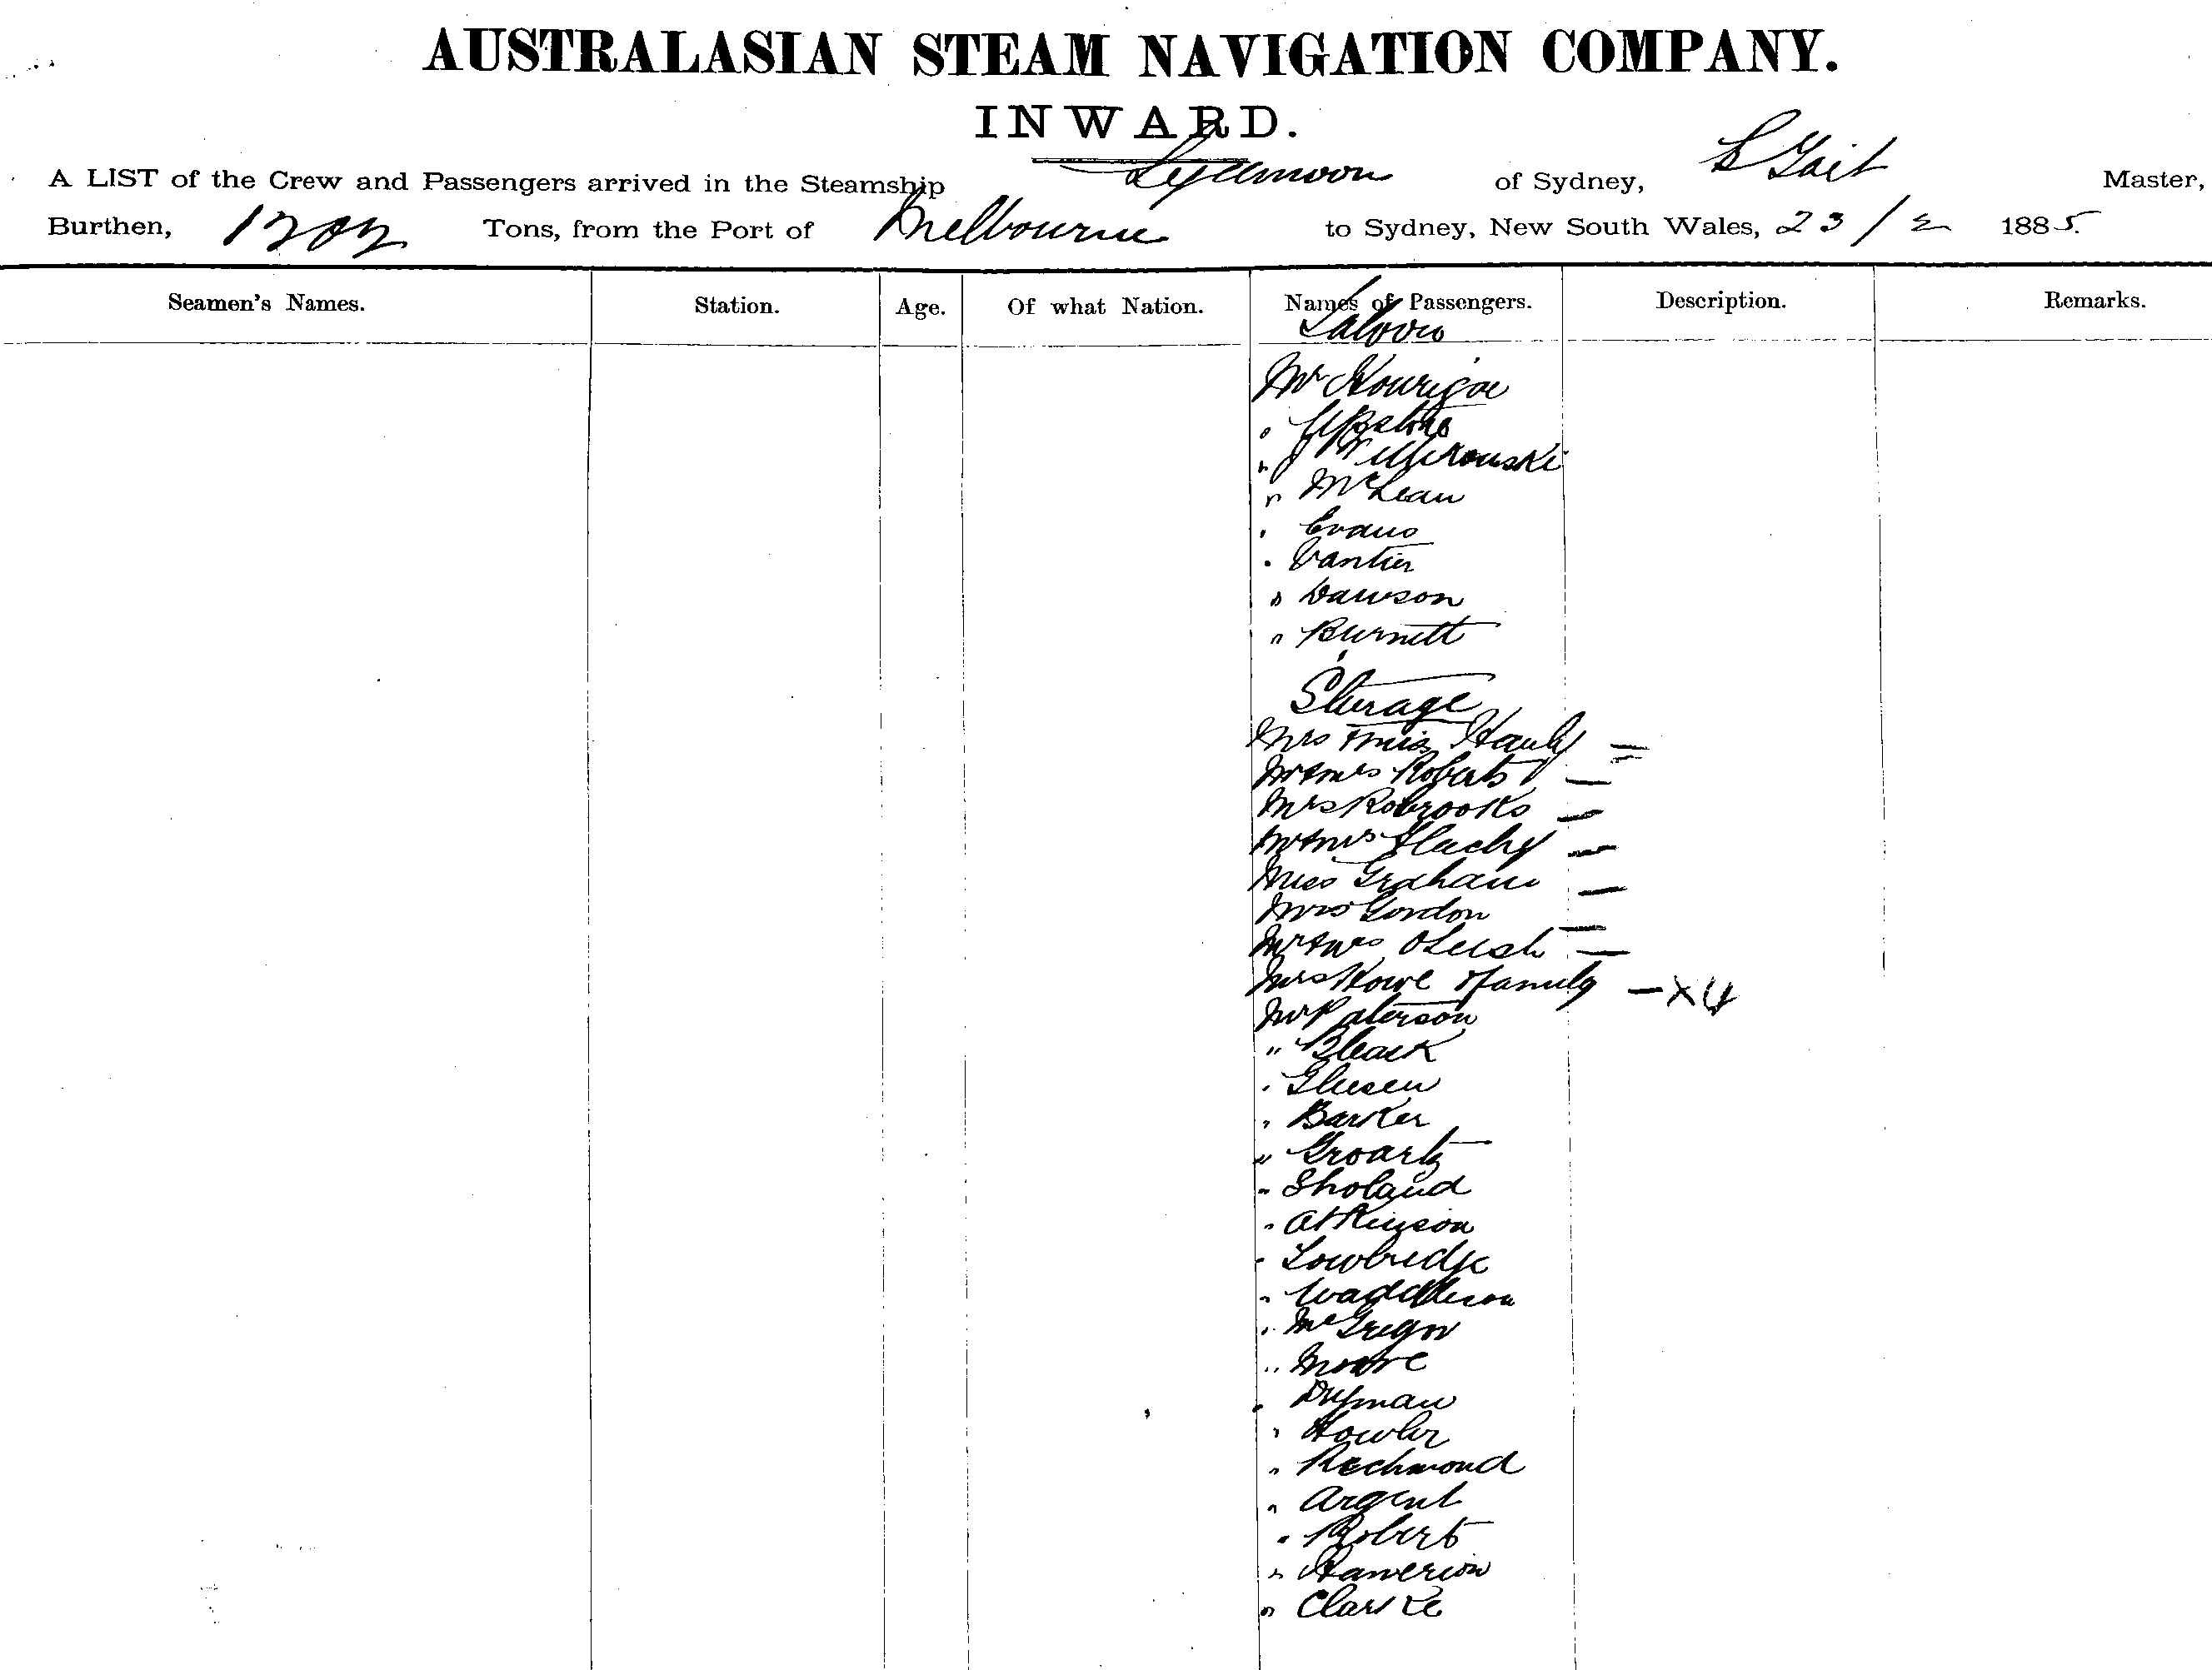 AUSTRALASIAN STEAM NAVIGATION COMPANY.
INWARD.
A LIST of the Crew and Passengers arrived in the Steamship Lyeemoon of Sydney, Gait Master,
Burthen, 1202 Tons, from the Port of Melbourne to Sydney, New South Wales, 23/2 1885.
Seamen's Names. Station. Age. Of what Nation. Names of Passengers. Description. Remarks.
Saloon
Mr Hourigan
"
"
" McLean
" Evans
" Vantier
" Dawson
" Burnett
Steerage
Mrs & Miss Hanly =
Mr & Mrs Roberts —
Mrs Robrooks —
Mr & Mrs —
Miss Graham —
Mrs Gordon —
Mr & Mrs —
Mrs Howe & family — X 4
Mr Paterson
" Black
" Gleesen
" Barker
" Groarty
" Sholand
" Atkinson
" Lowbridge
" Waddleson
" McGregor
" Moore
"
" Howler
" Richmond
" Argent
" Robert
"
" Clarke